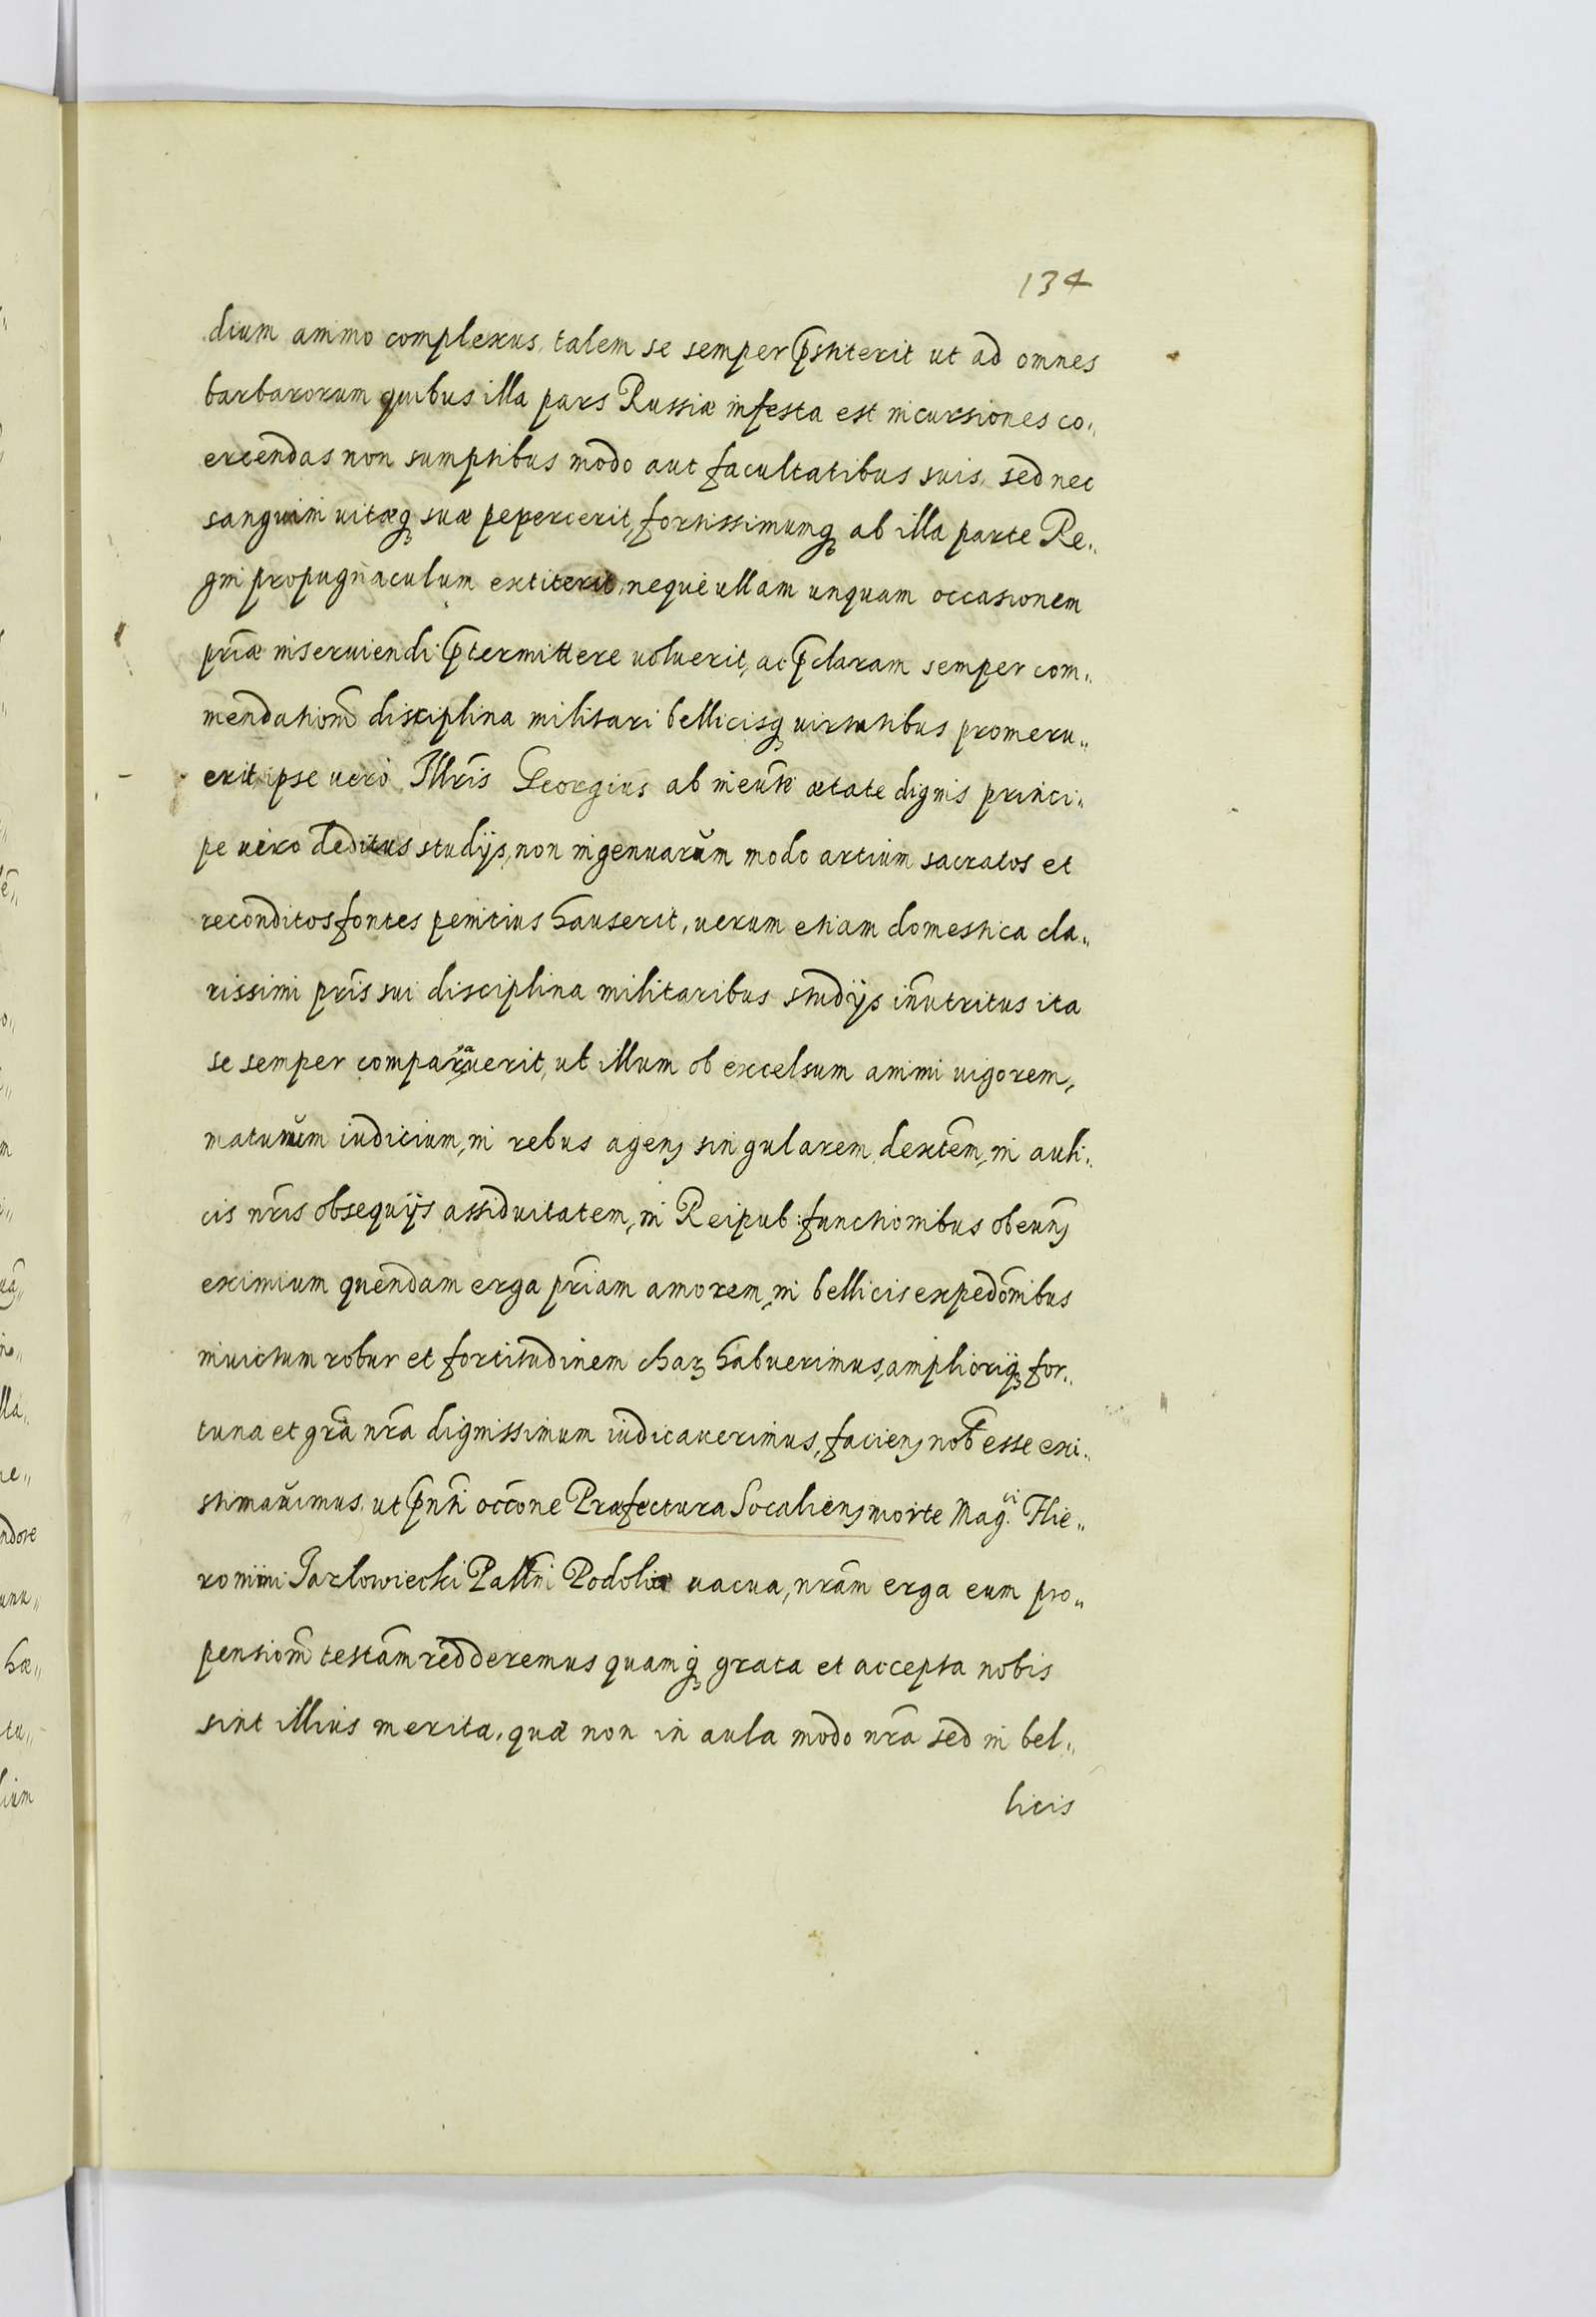 134
dium animo complexus, talem se semper p̃stiterit ut ad omnes
barbarorum quibus illa pars Russiæ infesta est incursiones co„
ercendas non sumptibus modo aut facultatibus suis, sed nec
sanguini vitæq₃ suæ pepercerit, fortissimumq₃ ab illa parte Re„
gni propugnaculum extiterit, neque ullam unquam occasionem
pr̃iæ inseruiendi p̃termittere uoluerit, ac p̃claram semper com„
mendatiom̃ disciplina militari bellicisq₃ uirtutibus promeru„
erit, ipse uero Illr̃is Georgius ab ineun̄ti ætate dignis princi„
pe uiro deditus studijs, non ingenuarum modo artium sacratos et
reconditos fontes penitius hauserit, uerum etiam domestica cla„
rissimi pr̃is sui disciplina militaribus studijs innutritus ita
se semper comparauerit, ut illum ob excelsum animi uigorem,
maturum iudicium, in rebus agen₃ singularem dextem̃, in auli„
cis nr̃is obsequijs assiduitatem, in Reipub: functionibus obeun₃
eximium quendam erga pr̃iam amorem, in bellicis expedõnibus
inuictum robur et fortitudinem char₃ habuerimus, ampliorīq₃ for„
tuna et gr̃a nr̃a dignissimum iudicauerimus, facien₃ nob̃ esse exi„
stimauimus, ut p̃nti occõne Præfectura Socalien₃ morte Mag.ci Hie„
ronimi Jazlowiecki Pall̃ni Podoliæ uacua, nr̃am erga eum pro„
pensiom̃ testam̃ redderemus quamq₃ grata et accepta nobis
sint illius merita, quæ non in aula modo nr̃a sed in bel„
licis